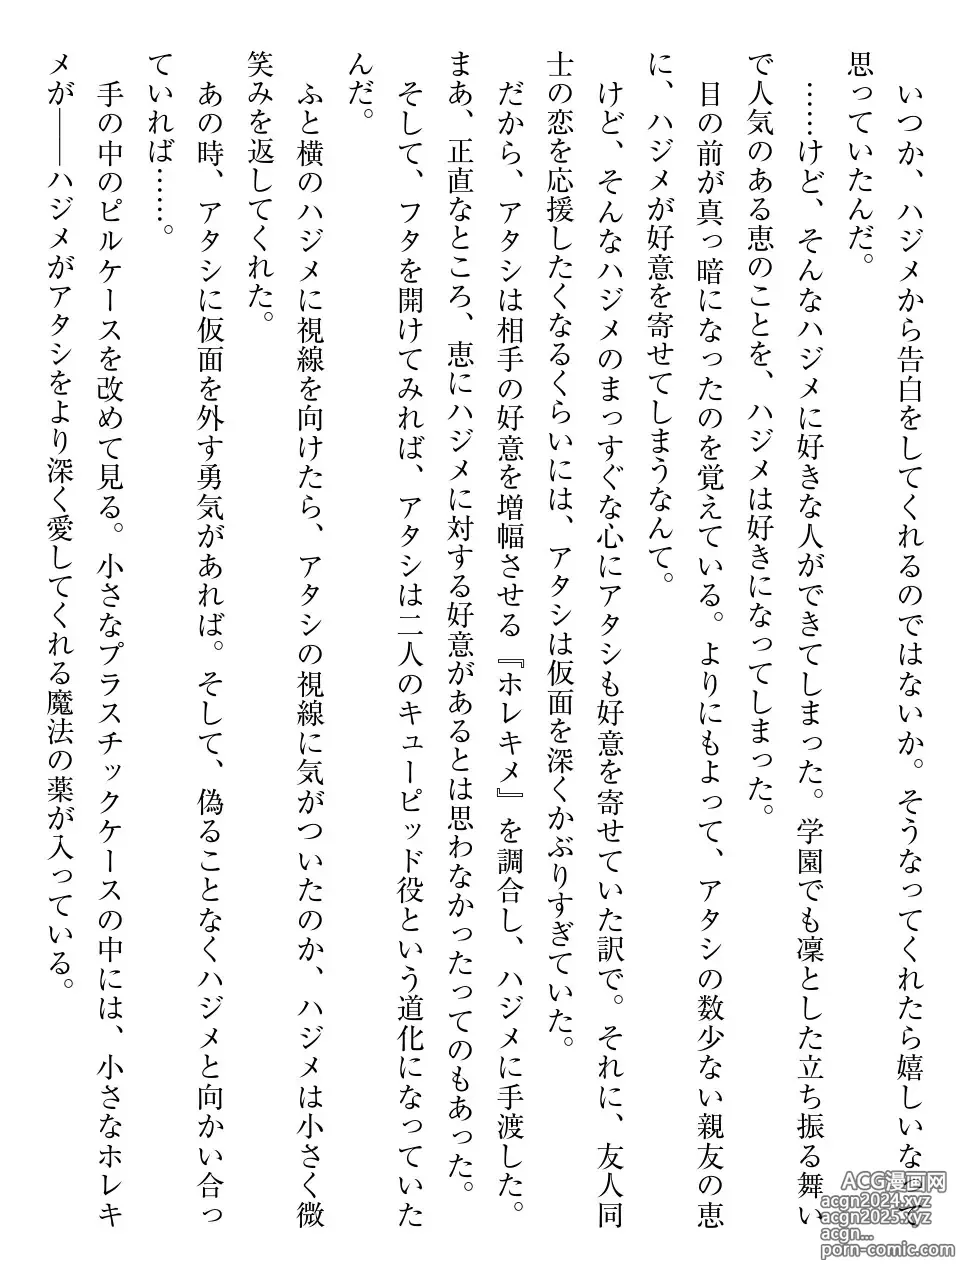 いつか、ハジメから告白をしてくれるのではないか。そうなってくれたら嬉しいなって
思っていたんだ。
……けど、そんなハジメに好きな人ができてしまった。学園でも凛とした立ち振る舞い
で人気のある恵のことを、ハジメは好きになってしまった。
目の前が真っ暗になったのを覚えている。よりにもよって、アタシの数少ない親友の恵
に、ハジメが好意を寄せてしまうなんて。
けど、そんなハジメのまっすぐな心にアタシも好意を寄せていた訳で。それに、友人同
士の恋を応援したくなるくらいには、アタシは仮面を深くかぶりすぎていた。
だから、アタシは相手の好意を増幅させる『ホレキメ』を調合し、ハジメに手渡した。
まあ、正直なところ、恵にハジメに対する好意があるとは思わなかったってのもあった。
そして、フタを開けてみれば、アタシは二人のキューピッド役という道化になっていた
んだ。
ふと横のハジメに視線を向けたら、アタシの視線に気がついたのか、ハジメは小さく微
笑みを返してくれた。
あの時、アタシに仮面を外す勇気があれば。そして、偽ることなくハジメと向かい合っ
ていれば……。
手の中のピルケースを改めて見る。小さなプラスチックケースの中には、小さなホレキ
メが――ハジメがアタシをより深く愛してくれる魔法の薬が入っている。
ACG漫画网
acgn2024.xyz
acgn2025.xyz
acgn...
porn-comic.com